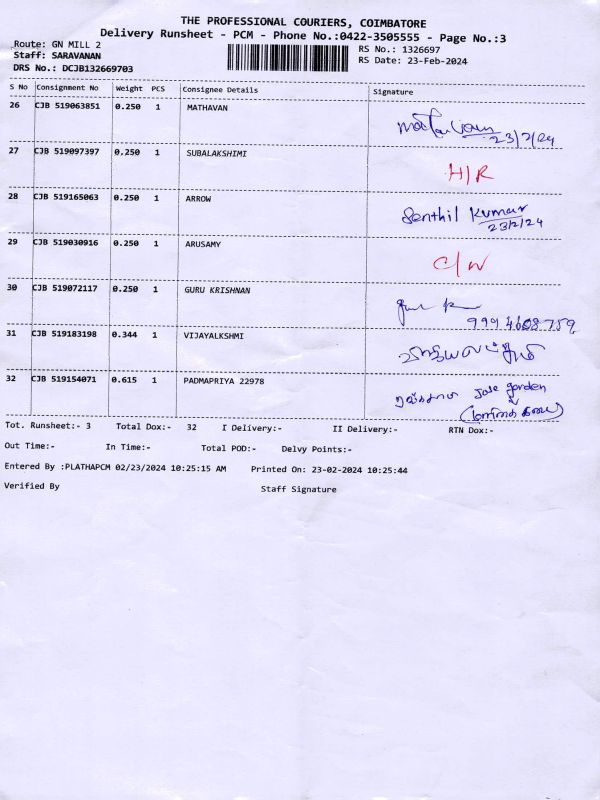 THE PROFESSIONAL COURIERS, COIMBATORE
Delivery Runsheet - PCM - Phone No.:0422-3505555 - Page No.:3
Route: GN MILL 2
RS No.: 1326697
Staff: SARAVANAN
RS Date: 23-Feb-2024
DRS No.: DCJB132669703
S No Consignment No Weight PCS Consignee Details Signature
26 CJB 519063851 0.250 1 MATHAVAN
23/2/24
27 CJB 519097397 0.250 1 SUBALAKSHIMI H/R
28 CJB 519165063 0.250 1 ARROW Senthil Kumar
23/2/24
29 CJB 519030916 0.250 1 ARUSAMY C/W
30 CJB 519072117 0.250 1 GURU KRISHNAN
9994608759
31 CJB 519183198 0.344 1 VIJAYALKSHMI விஜயலட்சுமி
32 CJB 519154071 0.615 1 PADMAPRIYA 22978 Jose garden
Tot. Runsheet:- 3 Total Dox:- 32 I Delivery:- II Delivery:- RTN Dox:-
Out Time:- In Time:- Total POD:- Delvy Points:-
Entered By :PLATHAPCM 02/23/2024 10:25:15 AM Printed On: 23-02-2024 10:25:44
Verified By Staff Signature